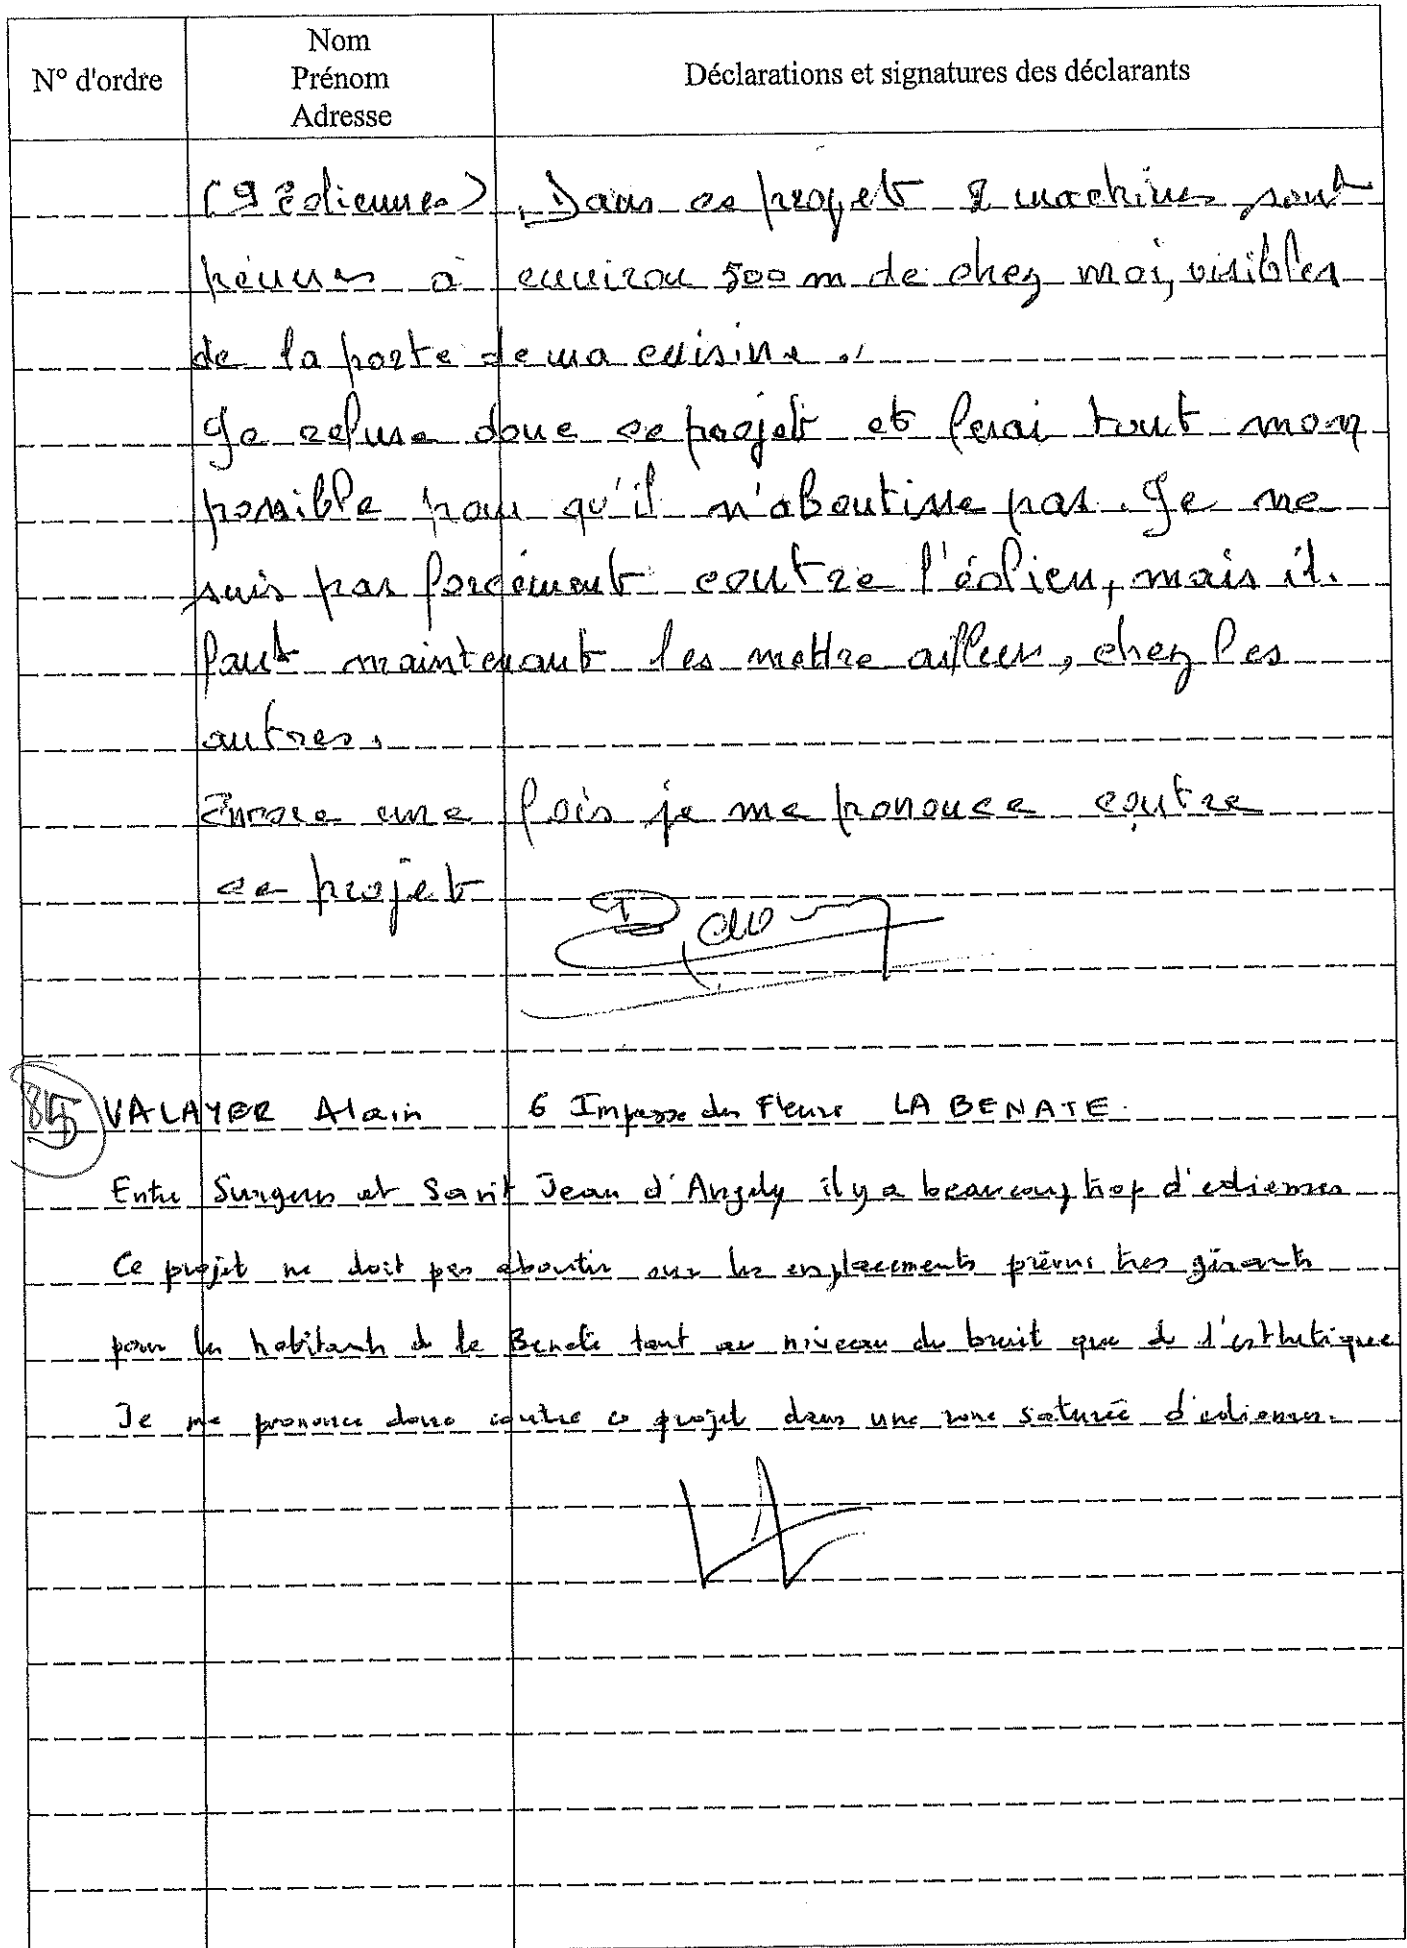 N° d'ordre
Nom
Prénom
Adresse
Déclarations et signatures des déclarants
(9 éoliennes). Dans ce projet 2 machines sont
prévues à environ 500 m de chez moi, visibles
de la porte de ma cuisine.
Je refuse donc ce projet et ferai tout mon
possible pour qu'il n'aboutisse pas. Je ne
suis pas forcément contre l'éolien, mais il
faut maintenant les mettre ailleurs, chez les
autres.
Encore une fois je me prononce contre
ce projet
85 VALAYER Alain 6 Impasse des Fleurs LA BENATE
Entre Surgeres et Saint Jean d'Angely il y a beaucoup trop d'eoliennes
Ce projet ne doit pas aboutir sur les emplacements prévus tres gênants
pour les habitants de la Benate tant au niveau du bruit que de l'esthetique
Je me prononce donc contre ce projet dans une zone saturée d'eoliennes.